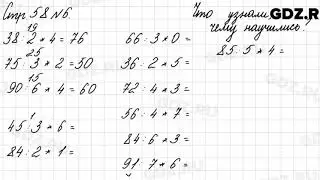 Стр 58 №6.
19
38 : 2 * 4 = 76
25
75 : 3 * 2 = 50
15
90 : 6 * 4 = 60
45 : 3 * 6 =
84 : 2 * 1 =
66 : 3 * 0 =
36 : 2 * 5 =
72 : 4 * 3 =
56 : 4 * 7 =
84 : 6 * 3 =
91 : 7 * 6 =
Что узнали,
чему научились.
85 : 5 * 4 =
GDZ.RU